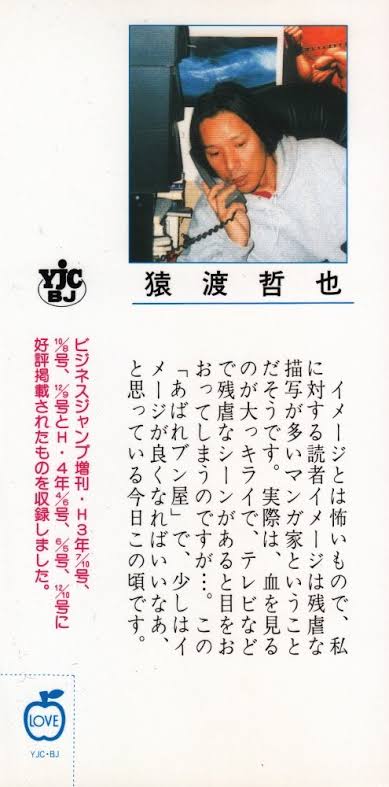 猿渡哲也
イメージとは怖いもので、私
に対する読者イメージは残虐な
描写が多いマンガ家ということ
だそうです。実際は、血を見る
のが大っキライで、テレビなど
で残虐なシーンがあると目をお
おってしまうのですが…。この
「あばれブン屋」で、少しはイ
メージが良くなればいいなあ、
と思っている今日この頃です。
YJC
BJ
ビジネスジャンプ増刊・H3年7/10号、
10/8号、12/9号とH・4年4/6号、6/5号、12/10号に
好評掲載されたものを収録しました。
LOVE
YJC・BJ